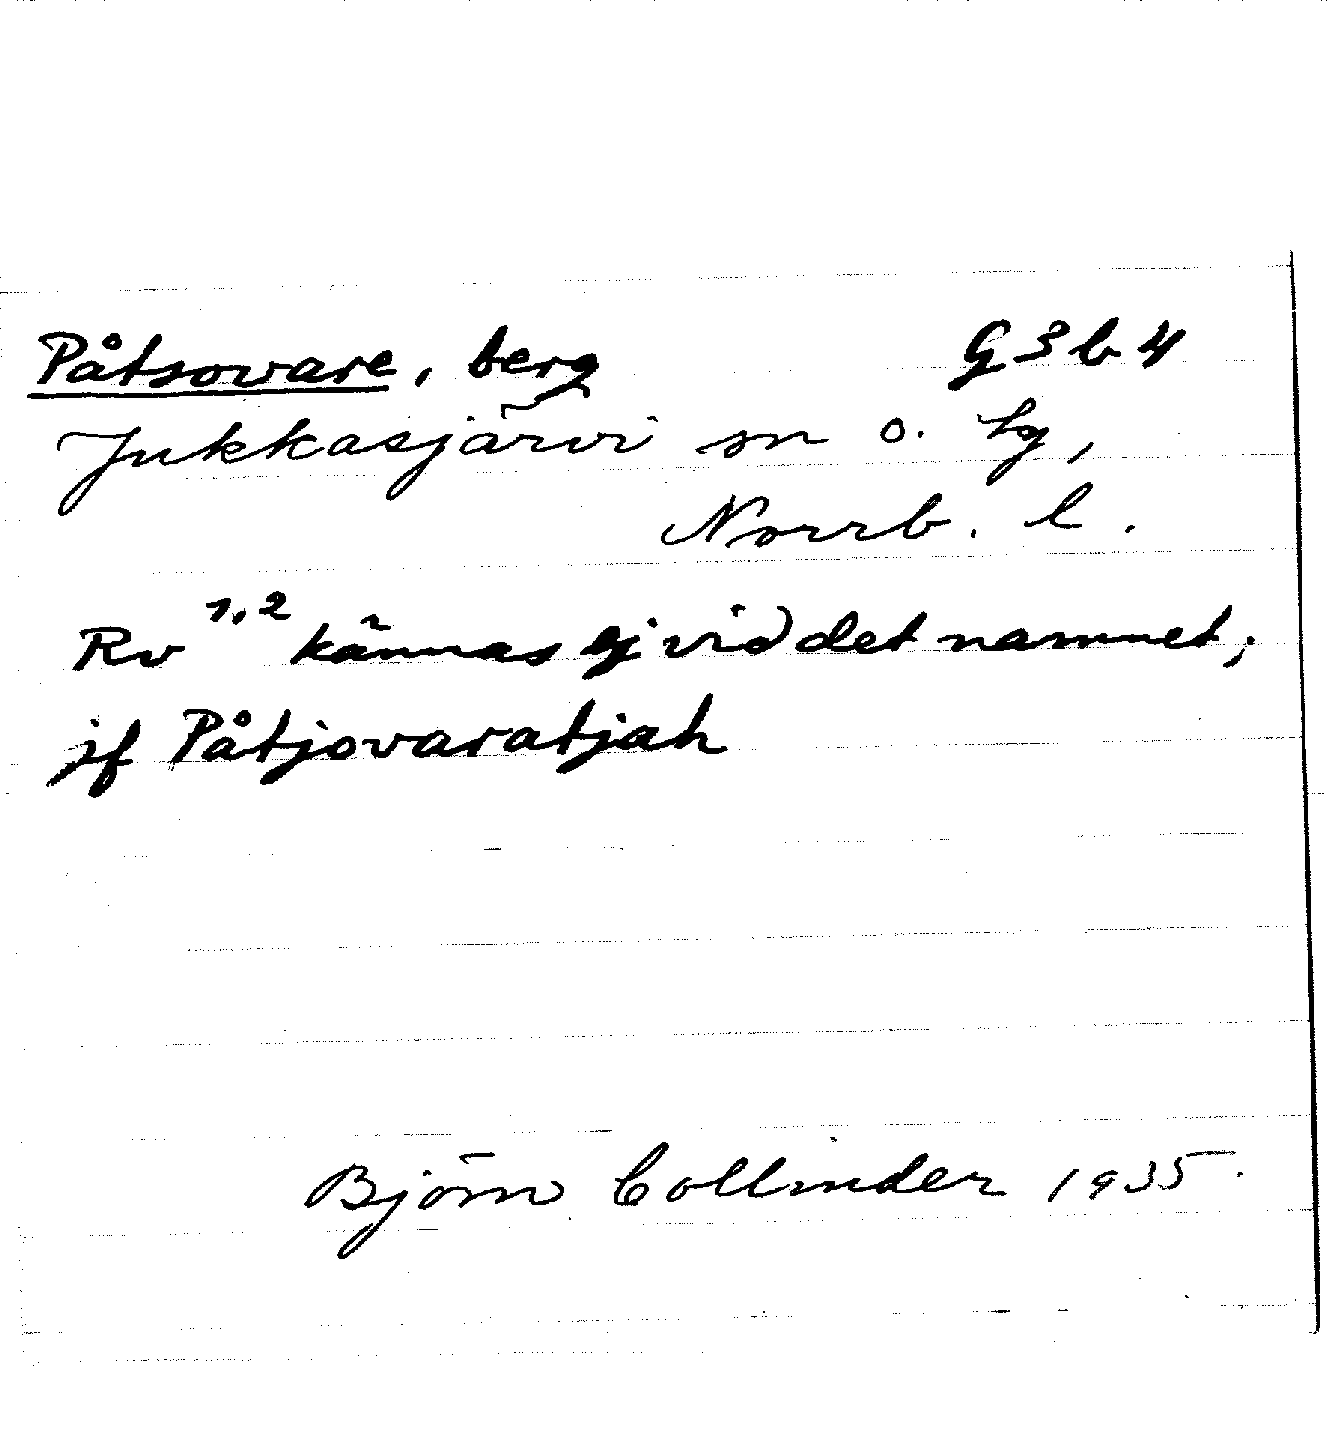 Påtsovare, berg G 3 b 4
Jukkasjärvi sn o. tg,
Norrb. l.
Rv 1,2 kännas ej vid det namnet;
jf Påtjovaratjah
Björn Collinder 1935.